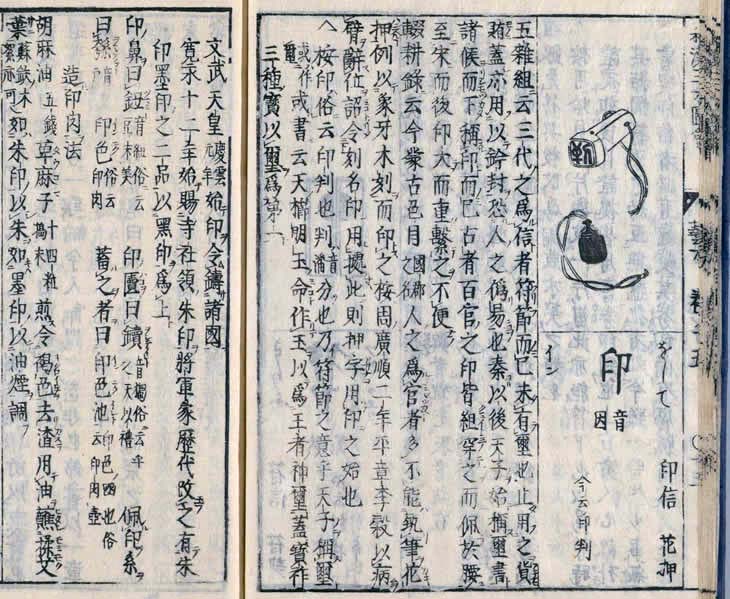 藝才 卷十五
をして 印信 花押
印 音因
イン
今云印判
五雜組云三代之爲信者符節而已未有璽也止用之貨
賄蓋亦用以鈐封恐人之僞易也秦以後天子始稱璽書
諸候而下稱印而已占者百官之印皆組穿之而佩於腰
至宋而後印大而重繫之不便
輟耕録云今蒙古色目之人爲官者多不能執筆花
押例以象牙木刻而印之按周廣順二年平章李穀以病
臂辭位詔令刻名印用據此則押字用印之始也
△按印俗云印判也判分也乃符節之意乎天子稱璽
或作 或書云天櫛明玉命作玉以爲王者神璽蓋寶祚
三種寶以璽爲第一
文武天皇慶雲年始印令鑄諸國
寛永十二年始賜寺社領朱印將軍家歷代改之有朱
印墨印之二品以黑印爲上
印鼻曰鈕音紐俗云 印匱曰鐀 佩印系
曰 印色俗云印肉 蓄之者曰印色池俗云印肉壺
造印肉法
胡麻油五錢草麻子十四粒煎令褐色去渣用油蘸揉艾
葉蘇鉄木綿亦可如朱印以朱如墨印以油煙調